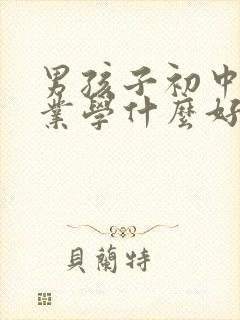 男孩子初中
業學什麼好
貝蘭特